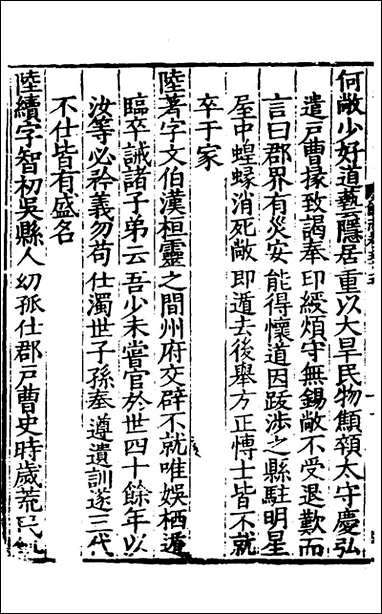 何敞少好道藝隱居重以大旱民物顦顇太守慶弘
遣戸曹掾致謁奉印綬煩守無錫敞不受退歎而
言曰郡界有災安能得懷道因跋涉之縣駐明星
屋中蝗蟓消死敞即遁去後舉方正博士皆不就
卒于家
陸著字文伯漢桓靈之間州府交辟不就唯娛栖遁
臨卒誡諸子弟云吾少未嘗官於世四十餘年以
汝等必矜義勿苟仕濁世子孫奉遵遺訓遂三代
不仕皆有盛名
陸續字智初吳縣人幼孤仕郡戸曹史時歲荒民